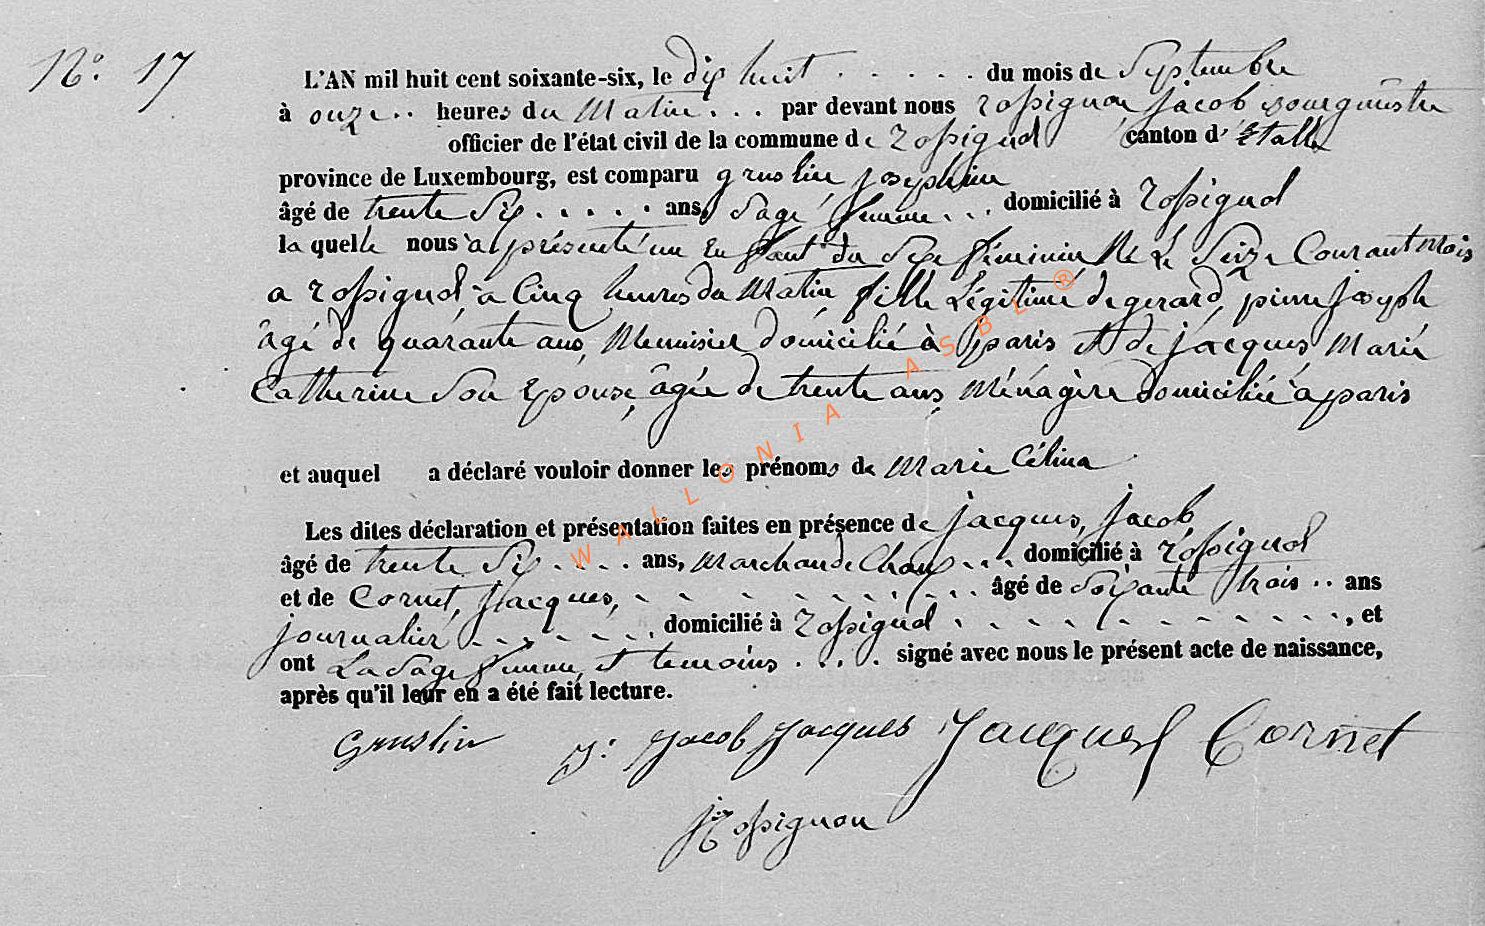 N.o 17
L'AN mil huit cent soixante-six, le dix huit . . . . . du mois de Septembre
à onze .. heures du Matin . . . par devant nous rossignon jacob Bourgmestre
officier de l'état civil de la commune de rossignol canton d'étalle
province de Luxembourg, est comparu gruslin joséphine
âgé de trente six . . . . . ans, Sage femme . . . domicilié à rossignol
laquelle nous a présenté un Enfant du Sexe féminin Né Le Seize Courant Mois
a rossignol à Cinq heures du Matin fille Légitime de gerard, pierre joseph
âgé de quarante ans, Menuisier domicilié à paris et de jacques, Marie
Catherine Son Epouse, âgée de trente ans, Ménagère domiciliée à paris
et auquel a déclaré vouloir donner les prénoms de Marie Célina
Les dites déclaration et présentation faites en présence de jacques, jacob,
âgé de trente Six . . . . ans, Marchand de Chaux . . . domicilié à rossignol
et de Cornet, jacques, - - - - - - - . . . âgé de Soixante trois .. ans
journalier - - - - - - . domicilié à rossignol . . . . . . . . . . . . ., et
ont La Sage femme, et temoins . . . . signé avec nous le présent acte de naissance,
après qu'il leur en a été fait lecture.
Gruslin J: Jacob Jacques Jacques Cornet
J Rossignon
WALLONIA ASBL ®